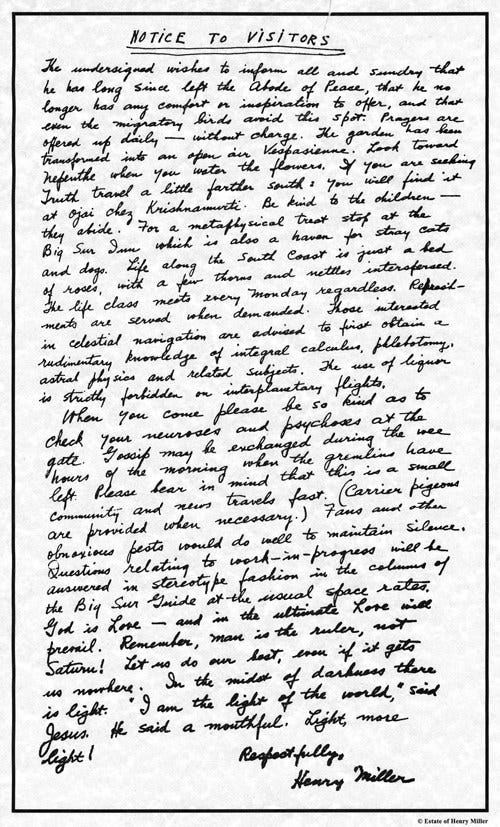 NOTICE TO VISITORS
The undersigned wishes to inform all and sundry that
he has long since left the Abode of Peace, that he no
longer has any comfort or inspiration to offer, and that
even the migratory birds avoid this spot. Prayers are
offered up daily — without charge. The garden has been
transformed into an open air Vespasienne. Look toward
Nepenthe when you water the flowers. If you are seeking
Truth travel a little farther south: you will find it
at Ojai chez Krishnamurti. Be kind to the children —
they abide. For a metaphysical treat stop at the
Big Sur Inn which is also a haven for stray cats
and dogs. Life along the South Coast is just a bed
of roses, with a few thorns and nettles interspersed.
The life class meets every Monday regardless. Refresh-
ments are served when demanded. Those interested
in celestial navigation are advised to first obtain a
rudimentary knowledge of integral calculus, phlebotomy,
astral physics and related subjects. The use of liquor
is strictly forbidden on interplanetary flights.
When you come please be so kind as to
check your neuroses and psychoses at the
gate. Gossip may be exchanged during the wee
hours of the morning when the gremlins have
left. Please bear in mind that this is a small
community and news travels fast. (Carrier pigeons
are provided when necessary.) Fans and other
obnoxious pests would do well to maintain silence.
Questions relating to work-in-progress will be
answered in stereotype fashion in the columns of
the Big Sur Guide at the usual space rates.
God is Love — and in the ultimate Love will
prevail. Remember, man is the ruler, not
Saturn! Let us do our best, even if it gets
us nowhere. In the midst of darkness there
is light. "I am the light of the world," said
Jesus. He said a mouthful. Light, more
light!
Respectfully,
Henry Miller
© Estate of Henry Miller